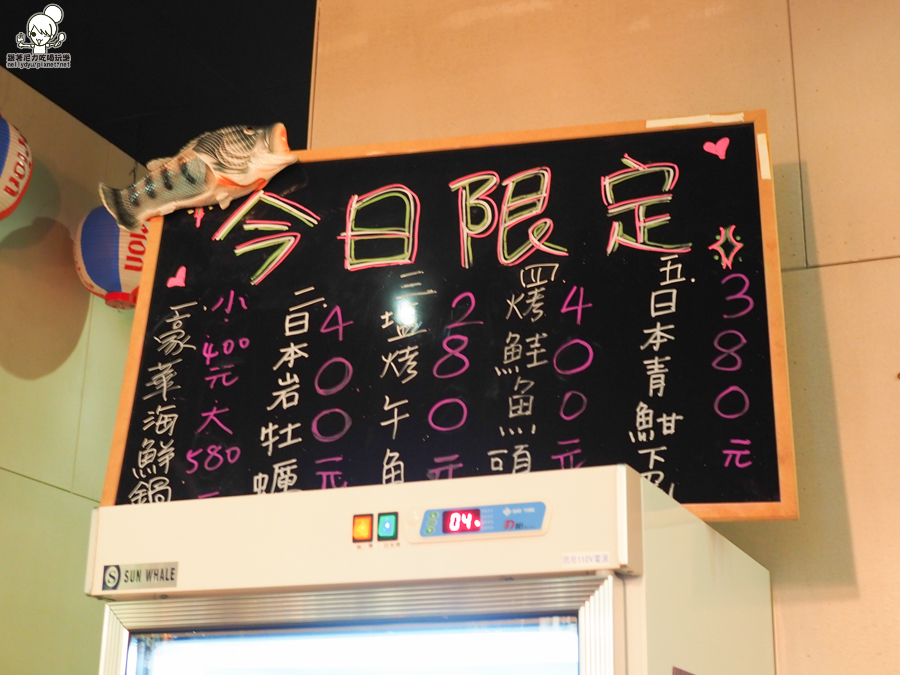 跟著尼力吃喝玩樂
nellydyu.pixnet.net
今日限定
一.豪華海鮮鍋
小.400元
大580
二.日本岩牡蠣
400元
三.塩烤午魚
280元
四.烤鮭魚頭
400元
五.日本青魽下巴
380元
04
SUN WHALE